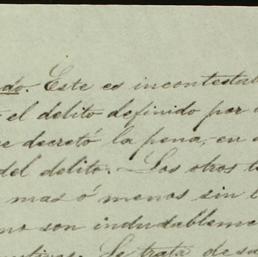 do. Este es incontestab
el delito definido por
e decretó la pena, en
del delito. - Los otros
mas ó menos sin
no son indudableme
Se trata de sa